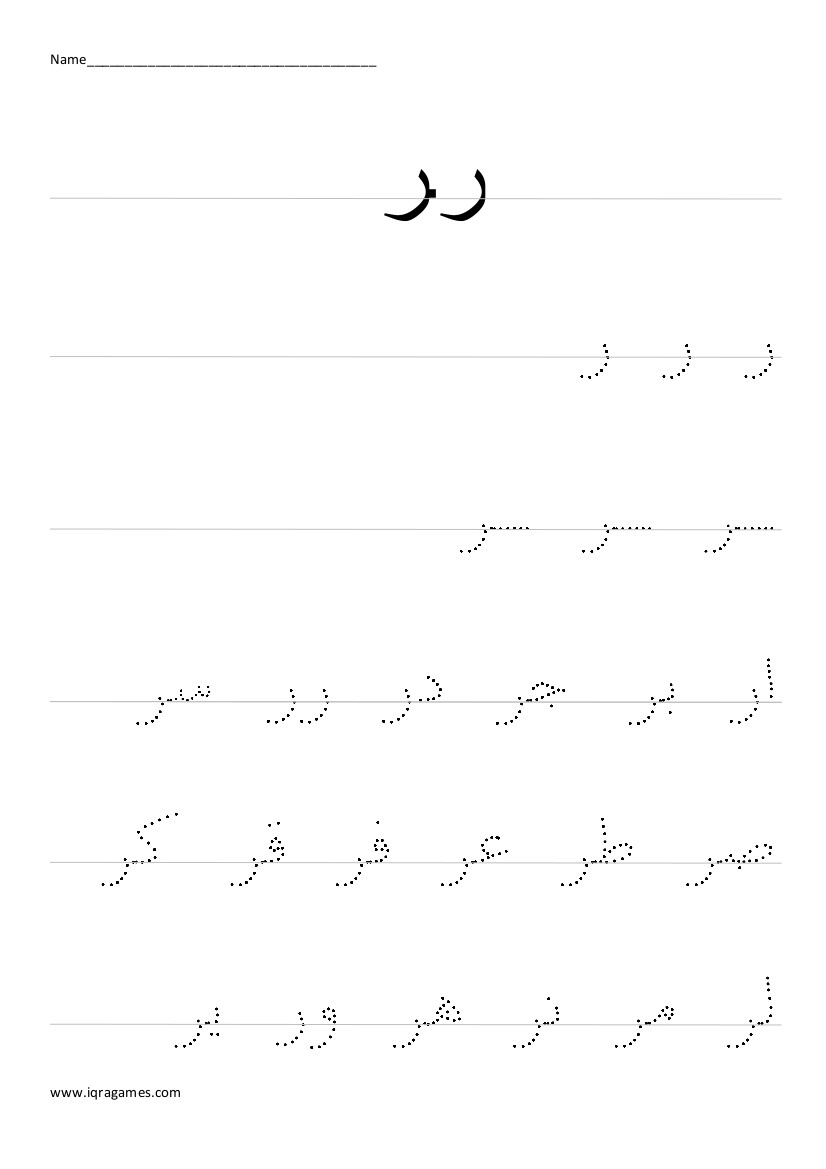 Name______________________________________
ر ـر
ر ر ر
ـر ـر ـر
ار بر جر در رر سر
صر طر عر فر قر كر
لر مر نر هر ور ير
www.iqragames.com